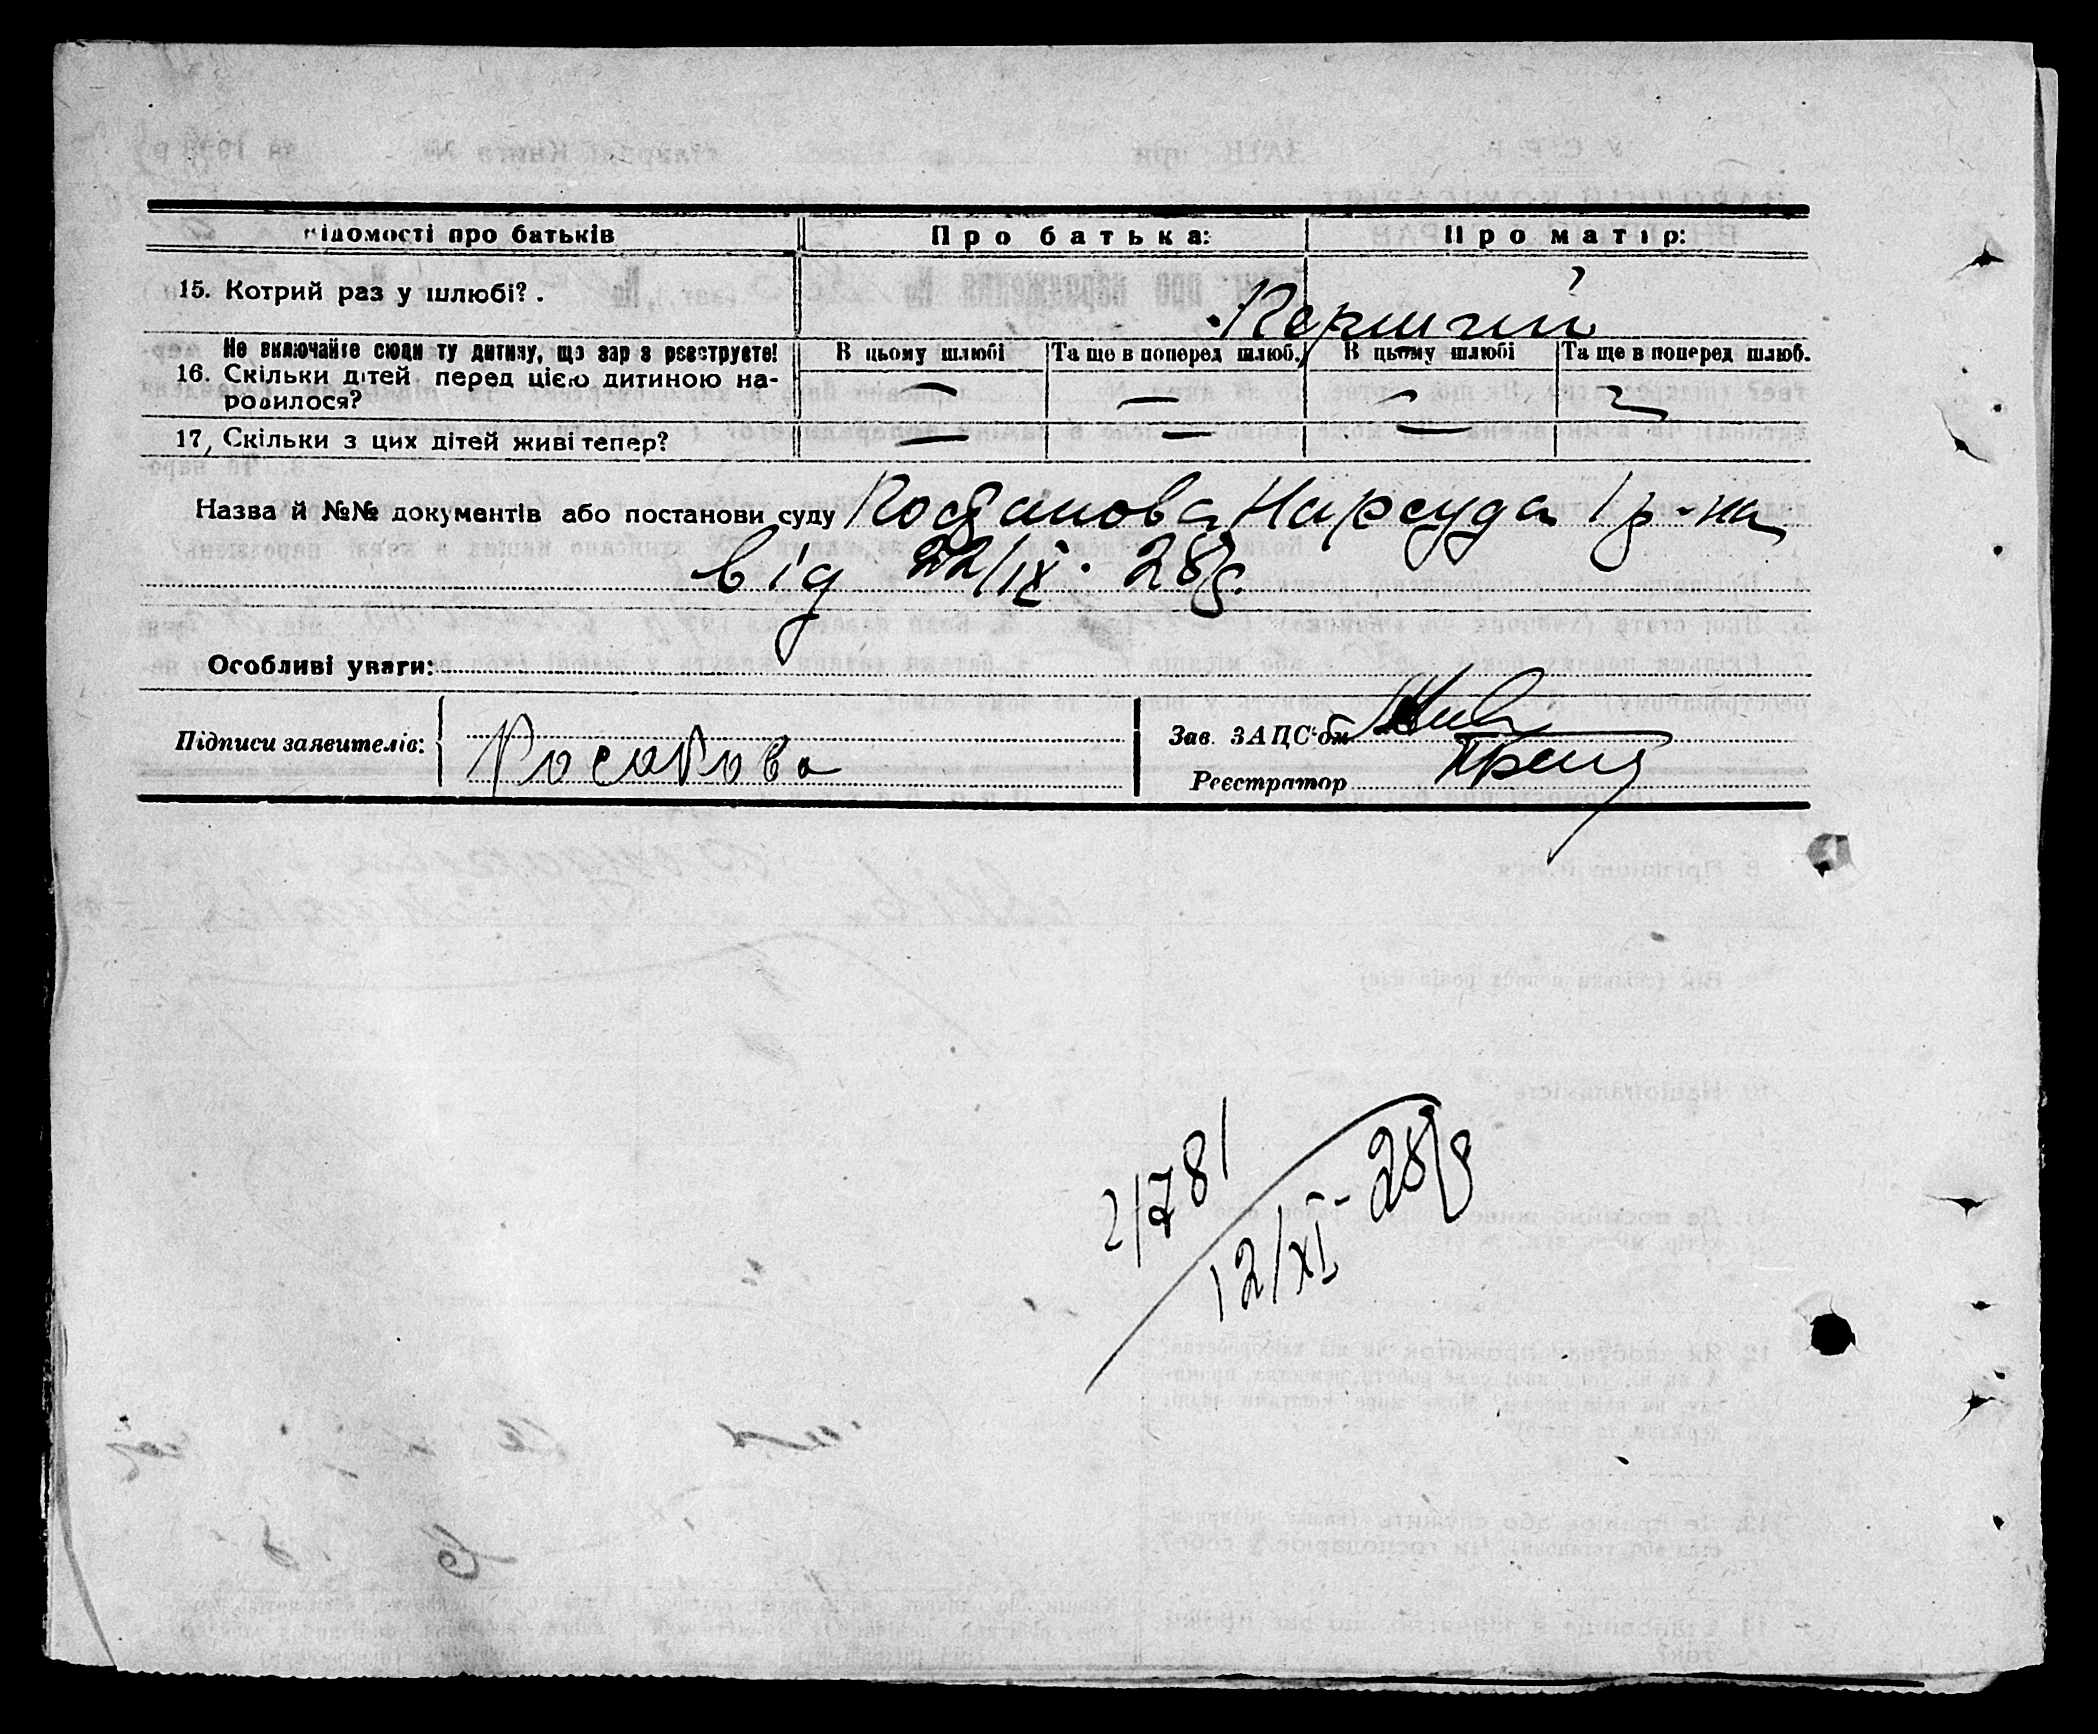 відомості про батьків Про батька: Про матір:
15. Котрий раз у шлюбі? . Перший
Не включайте сюди ту дитину, що зараз реєструєте! В цьому шлюбі Та ще в поперед шлюб. В цьому шлюбі Та ще в поперед шлюб.
16. Скільки дітей перед цією дитиною на-
родилося? — — — —
17, Скільки з цих дітей живі тепер? — — —
Назва й №№ документів або постанови суду Постанова Нарсуда 1 р-на
від 22/IX. 28 р.
Особливі уваги:
Підписи заявителів: Косакова Зав. ЗАЦС'ом
Реєстратор
21781
12/XI- 28 р